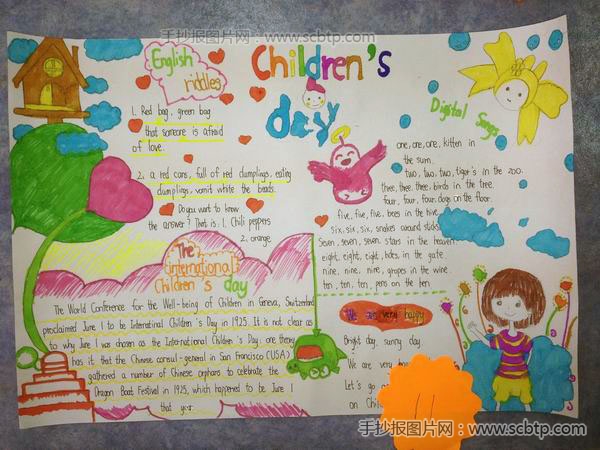 手抄报图片网：www.scbtp.com
Children's
day
English
riddles
1. Red bag, green bag
that someone is afraid
of love.
2, a red cans, full of red dumplings, eating
dumplings, vomit white the beads.
Do you want to know
the answer? That is: 1. Chili peppers
2, orange
Digital Songs
one, one, one, kitten in
the sum.
two, two, two, tiger's in the zoo.
thee, thee, thee, birds in the tree.
four, four, four, dogs on the floor.
five, five, five, bees in the hive
six, six, six, snakes around sticks
seven, seven, seven stars in the heaven
eight, eight, eight, holes in the gate.
nine, nine, nine, grapes in the wine.
ten, ten, ten, pens on the ben
The
international
Children's day
The World Conference for the Well-being of Children in Geneva, Switzerland
proclaimed June 1 to be Internatinal Children's Day in 1925. It is not clear as
to why June 1 was chosen as the International Children's Day: one theory
has it that the Chinese consul-general in San Francisco (USA)
gathered a number of Chinese orphans to celebrate the
Dragon Boat Festival in 1925, which happened to be June 1
that year.
We are very happy
Bright day, sunny day
We are very
Let's go
on Chi
手抄报图片网：www.scbtp.com